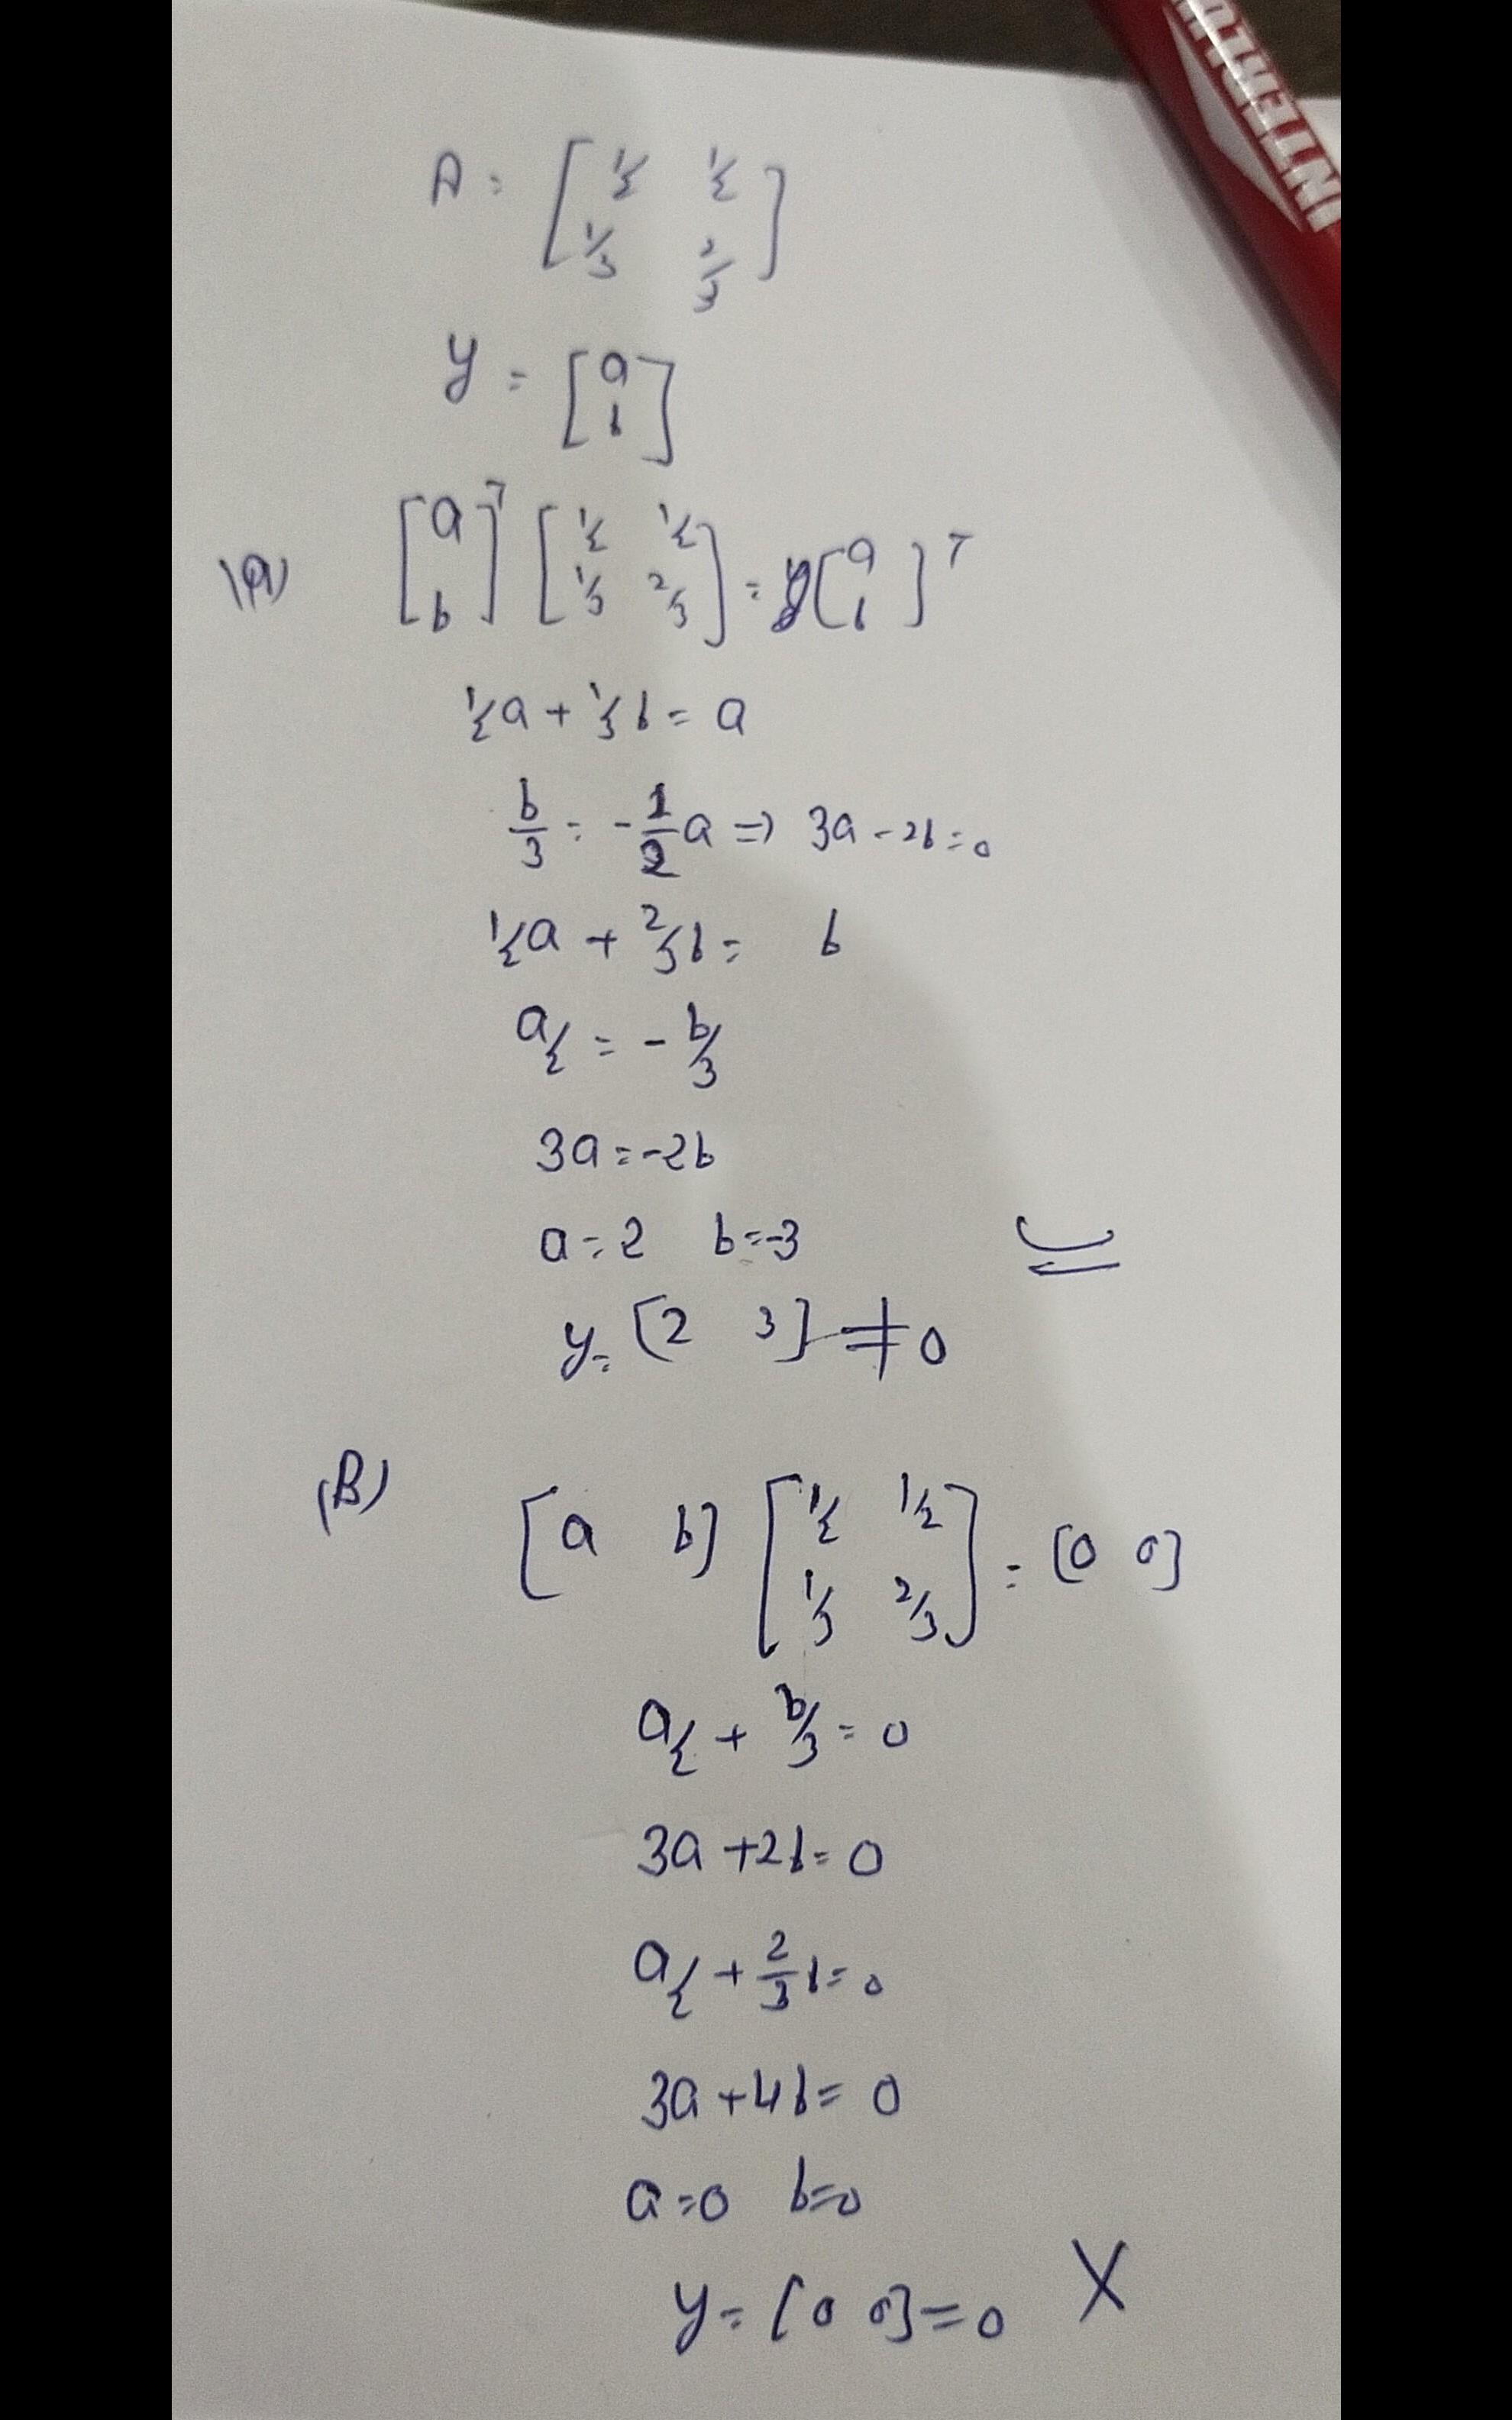 INTERLUN
A = [ 1/2 1/2
1/3 2/3 ]
y = [ a
b ]
(A) [ a
b ]ᵀ [ 1/2 1/2
1/3 2/3 ] = [ a
b ]ᵀ
1/2 a + 1/3 b = a
b/3 = - 1/2 a ⇒ 3a - 2b = 0
1/2 a + 2/3 b = b
a/2 = - b/3
3a = -2b
a = 2 b = -3
y = [2 3] ≠ 0
(B) [a b] [ 1/2 1/2
1/3 2/3 ] = [0 0]
a/2 + b/3 = 0
3a + 2b = 0
a/2 + 2/3 b = 0
3a + 4b = 0
a = 0 b = 0
y = [0 0] = 0 X